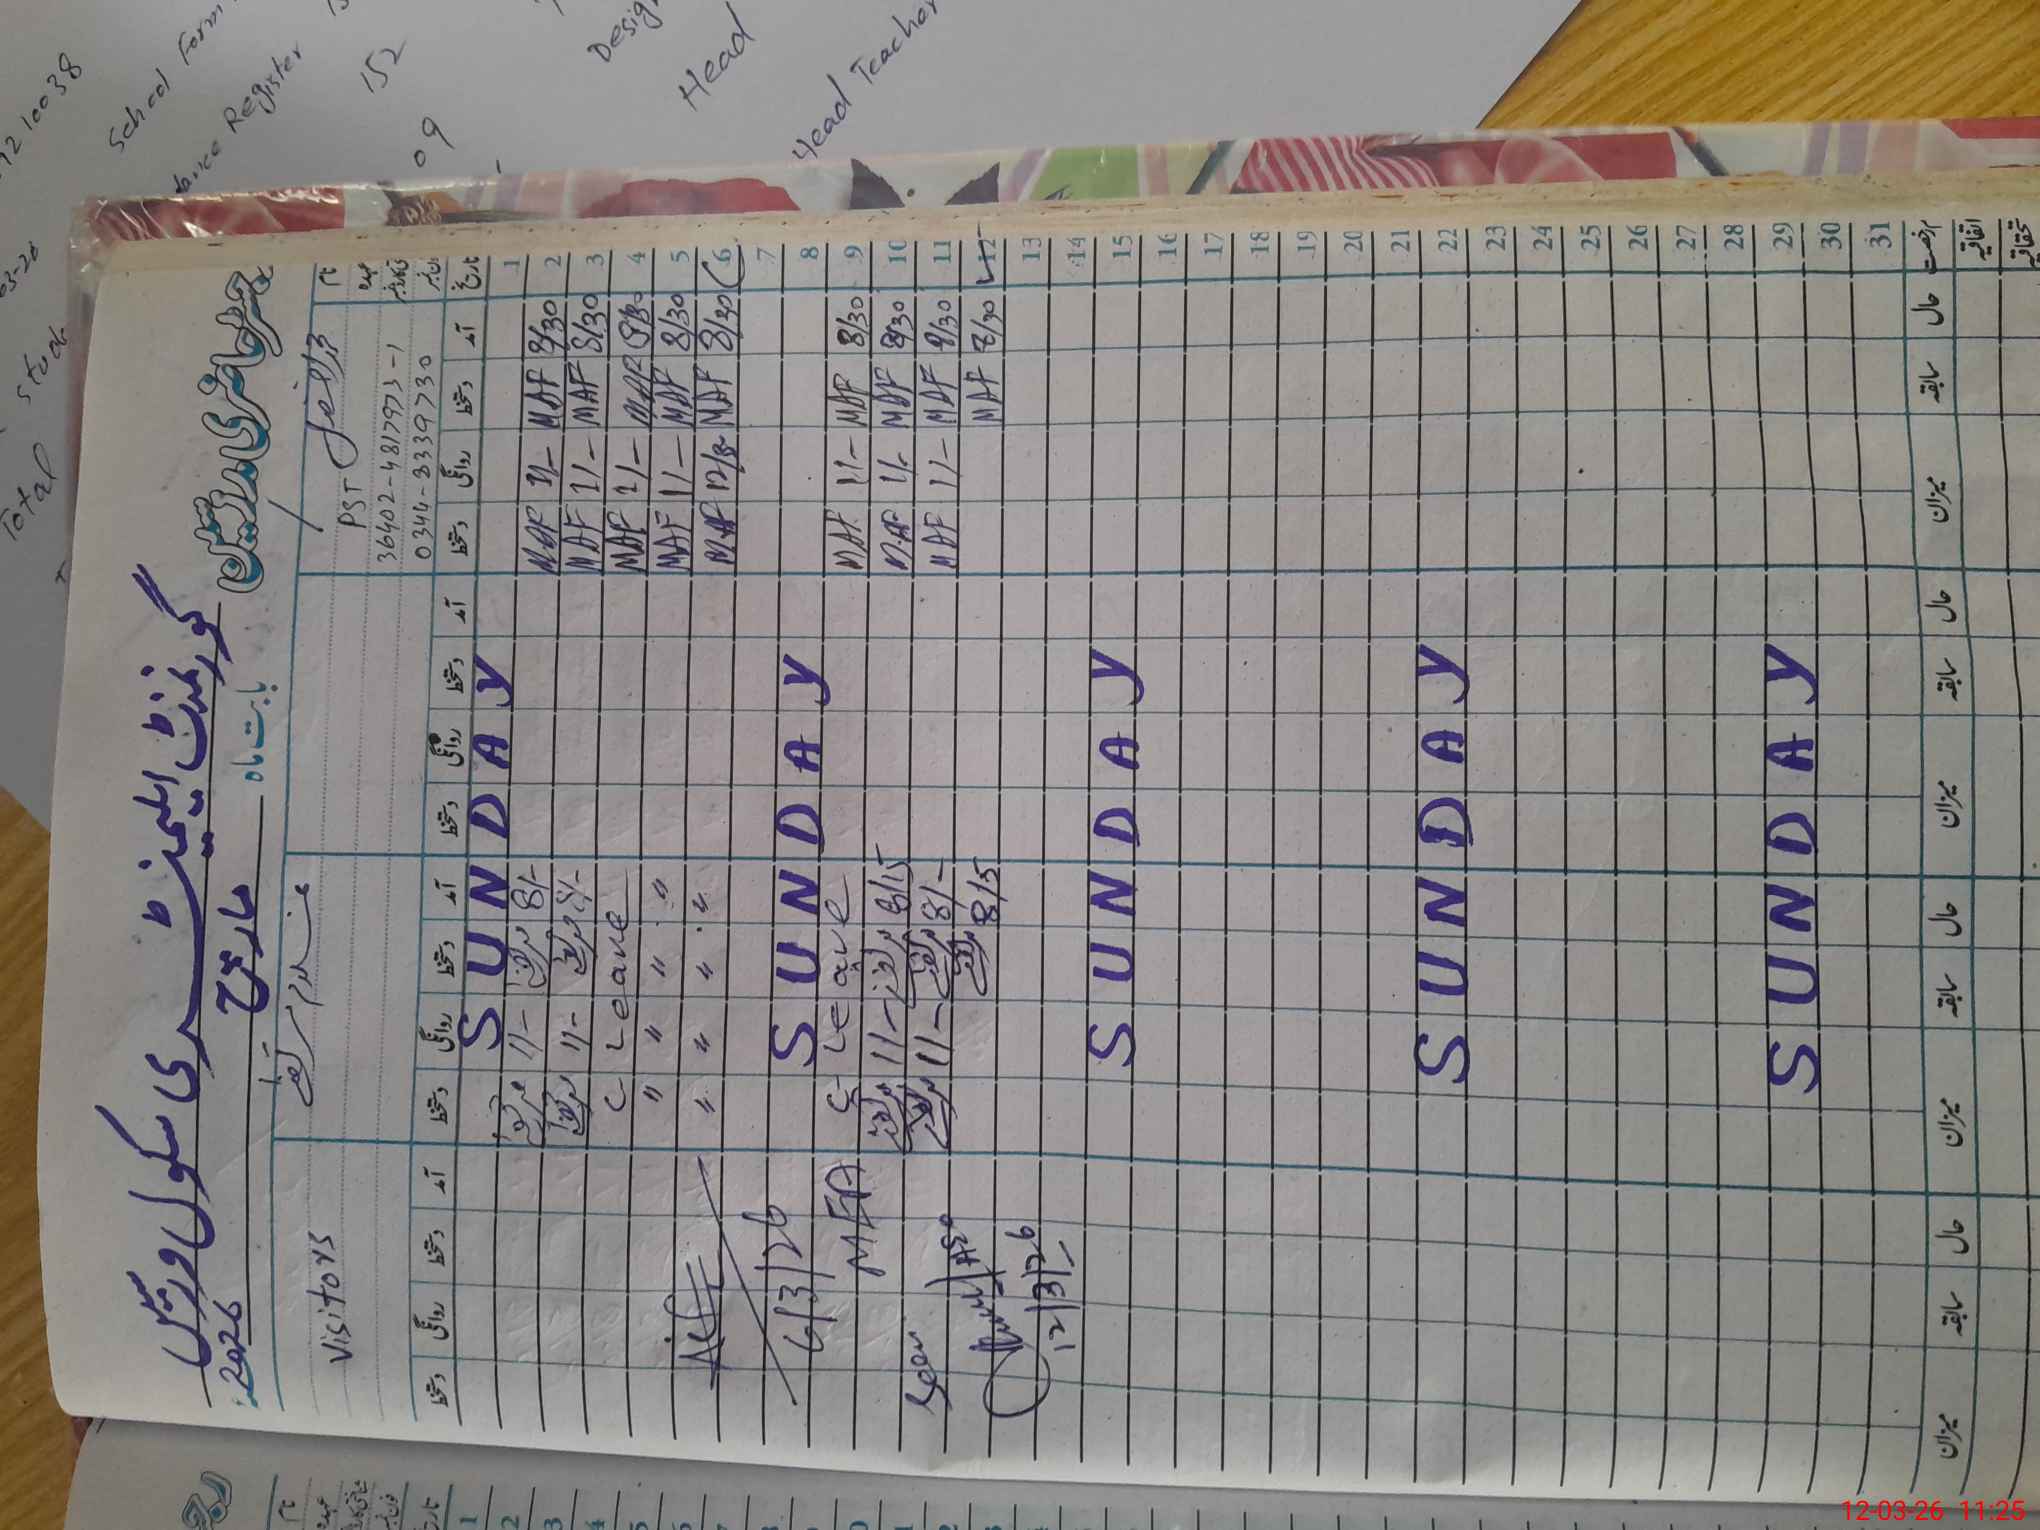 گورنمنٹ ایلیمنٹری سکول ورنیں
رجسٹر حاضری مدرسین
بابت ماہ مارچ 2026
نام
عہدہ PST
شناختی کارڈ نمبر 36402-4817973-1
فون نمبر 0344-3339730
Visitors
تاریخ آمد دستخط روانگی دستخط آمد دستخط روانگی دستخط آمد دستخط روانگی دستخط آمد دستخط روانگی دستخط
1 SUNDAY
2 8/30 MAF 11/- MAF 8/- 11/-
3 8/30 MAF 11/- MAF 8/- 11/-
4 8/30 MAF 11/- MAF C Leave
5 8/30 MAF 11/- MAF " " " "
6 8/30 MAF 12/8 MAF " " " "
7
8 SUNDAY
6/3/26
9 8/30 MAF 11/- MAF C- Leave
MEA
10 8/30 MAF 11/- MAF 8/15 11/-
11 8/30 MAF 11/- MAF 8/- 11/-
Seen
12 8/30 MAF 8/15
12/3/26
13
14
15 SUNDAY
16
17
18
19
20
21
22 SUNDAY
23
24
25
26
27
28
29 SUNDAY
30
31
رخصت حال سابقہ میزان حال سابقہ میزان حال سابقہ میزان حال سابقہ میزان
اتفاقیہ
استحقاقیہ
10038
School Form
Register
152
09
Head
Head Teacher
Total
12-03-26 11:25